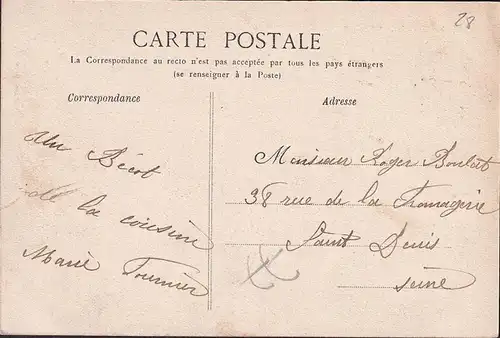 28
CARTE POSTALE
La Correspondance au recto n'est pas acceptée par tous les pays étrangers
(se renseigner à la Poste)
Correspondance
Adresse
Un Bécot
de la cousine
Marie Fournier
Monsieur Roger Boulat
38 rue de la Fromagerie
Saint Denis
Seine